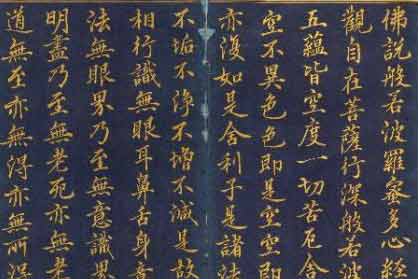 佛說般若波羅蜜多心經
觀自在菩薩行深般若波
五蘊皆空度一切苦厄舍
空不異色色即是空空即
亦復如是舍利子是諸法
不垢不淨不增不減是故
相行識無眼耳鼻舌身意
法無眼界乃至無意識界
明盡乃至無老死亦無老
道無至亦無得亦無所得